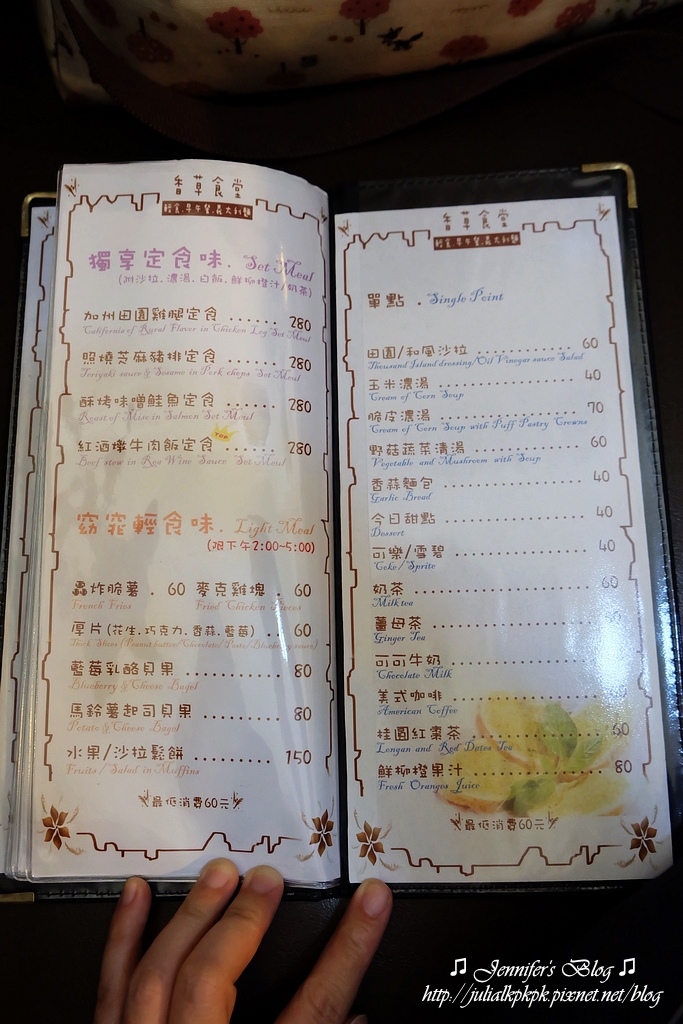 香草食堂
輕食.早午餐.義大利麵
獨享定食味. Set Meal
(附沙拉.濃湯.白飯.鮮柳橙汁/奶茶)
加州田園雞腿定食 ...... 280
California of Rural Flavor in Chicken Leg Set Meal
照燒芝麻豬排定食 ...... 280
Teriyaki sauce & Sesame in Pork chops Set Meal
酥烤味噌鮭魚定食 ...... 280
Roast of Miso in Salmon Set Meal
紅酒燉牛肉飯定食 ...... 280
Beef stew in Rea Wine Sauce Set Meal
窈窕輕食味. Light Meal
(限下午2:00~5:00)
轟炸脆薯 . 60 麥克雞塊 . 60
French Fries Fried Chicken Pieces
厚片(花生.巧克力.香蒜.藍莓) .. 60
Thick Slices (Peanut butter/Chocolate/Pesto/Blueberry sauce)
藍莓乳酪貝果 ......... 80
Blueberry & Cheese Bagel
馬鈴薯起司貝果 ........ 80
Potato & Cheese Bagel
水果/沙拉鬆餅 ........ 150
Fruits/Salad in Muffins
最低消費60元
香草食堂
輕食.早午餐.義大利麵
單點 . Single Point
田園/和風沙拉 ............ 60
Thousand Island dressing/Oil Vinegar sauce Salad
玉米濃湯 ............... 40
Cream of Corn Soup
脆皮濃湯 ............... 70
Cream of Corn Soup with Puff Pastry Crowns
野菇蔬菜清湯 ............ 60
Vegetable and Mushroom with Soup
香蒜麵包 ............... 40
Garlic Bread
今日甜點 ............... 40
Dessert
可樂/雪碧 .............. 40
Coke/Sprite
奶茶 .................. 60
Milk tea
薑母茶 ................
Ginger Tea
可可牛奶 ...............
Chocolate Milk
美式咖啡 ...............
American Coffee
桂圓紅棗茶 .............. 60
Longan and Red Dates Tea
鮮柳橙果汁 .............. 80
Fresh Oranges Juice
最低消費60元
♫ Jennifer's Blog ♫
http://julialkpkpk.pixnet.net/blog